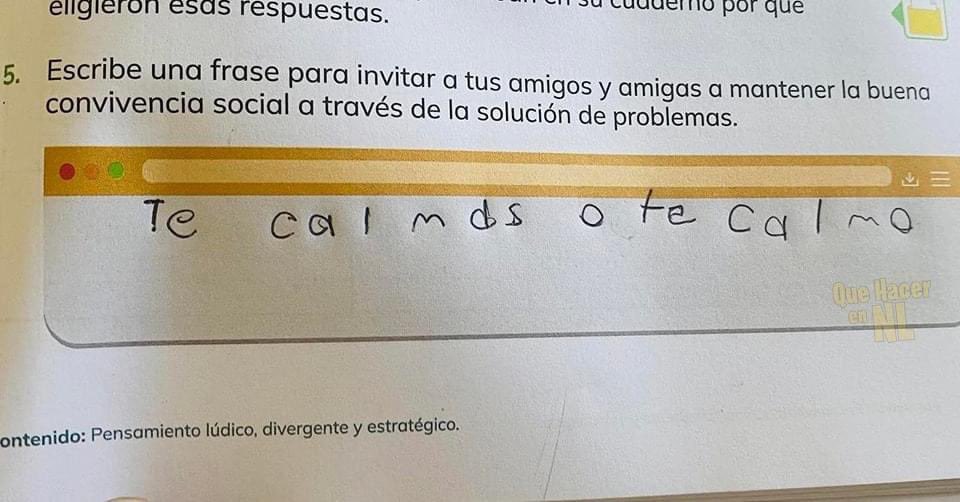 eligieron esas respuestas.
en su cuaderno por qué
5. Escribe una frase para invitar a tus amigos y amigas a mantener la buena
convivencia social a través de la solución de problemas.
Te calmas o te calmo
Que Hacer
en NL
ontenido: Pensamiento lúdico, divergente y estratégico.